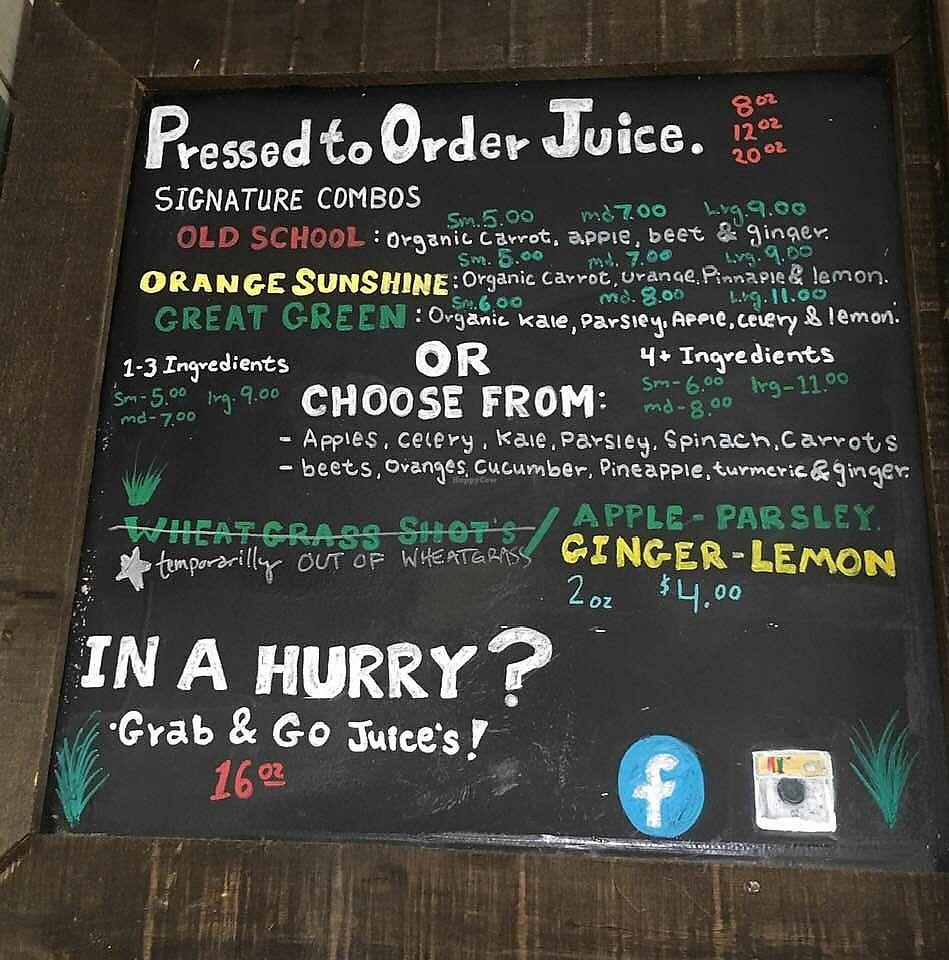 Pressed to Order Juice.
8oz
12oz
20oz
SIGNATURE COMBOS
Sm. 5.00 md 7.00 Lrg. 9.00
OLD SCHOOL : Organic Carrot, apple, beet & ginger.
Sm. 5.00 md. 7.00 Lrg. 9.00
ORANGE SUNSHINE : Organic Carrot, orange, Pinnaple & lemon.
Sm. 6.00 md. 8.00 Lrg. 11.00
GREAT GREEN : Organic Kale, Parsley, Apple, celery & lemon.
1-3 Ingredients
Sm-5.00 lrg-9.00
md-7.00
OR
CHOOSE FROM:
4+ Ingredients
Sm-6.00 lrg-11.00
md-8.00
- Apples, celery, Kale, Parsley, Spinach, Carrots
- beets, oranges, Cucumber, Pineapple, turmeric & ginger.
HappyCow
WHEATGRASS SHOT'S /
temporarilly OUT OF WHEATGRASS
APPLE - PARSLEY
GINGER-LEMON
2oz $4.00
IN A HURRY?
·Grab & Go Juice's!
16oz
f